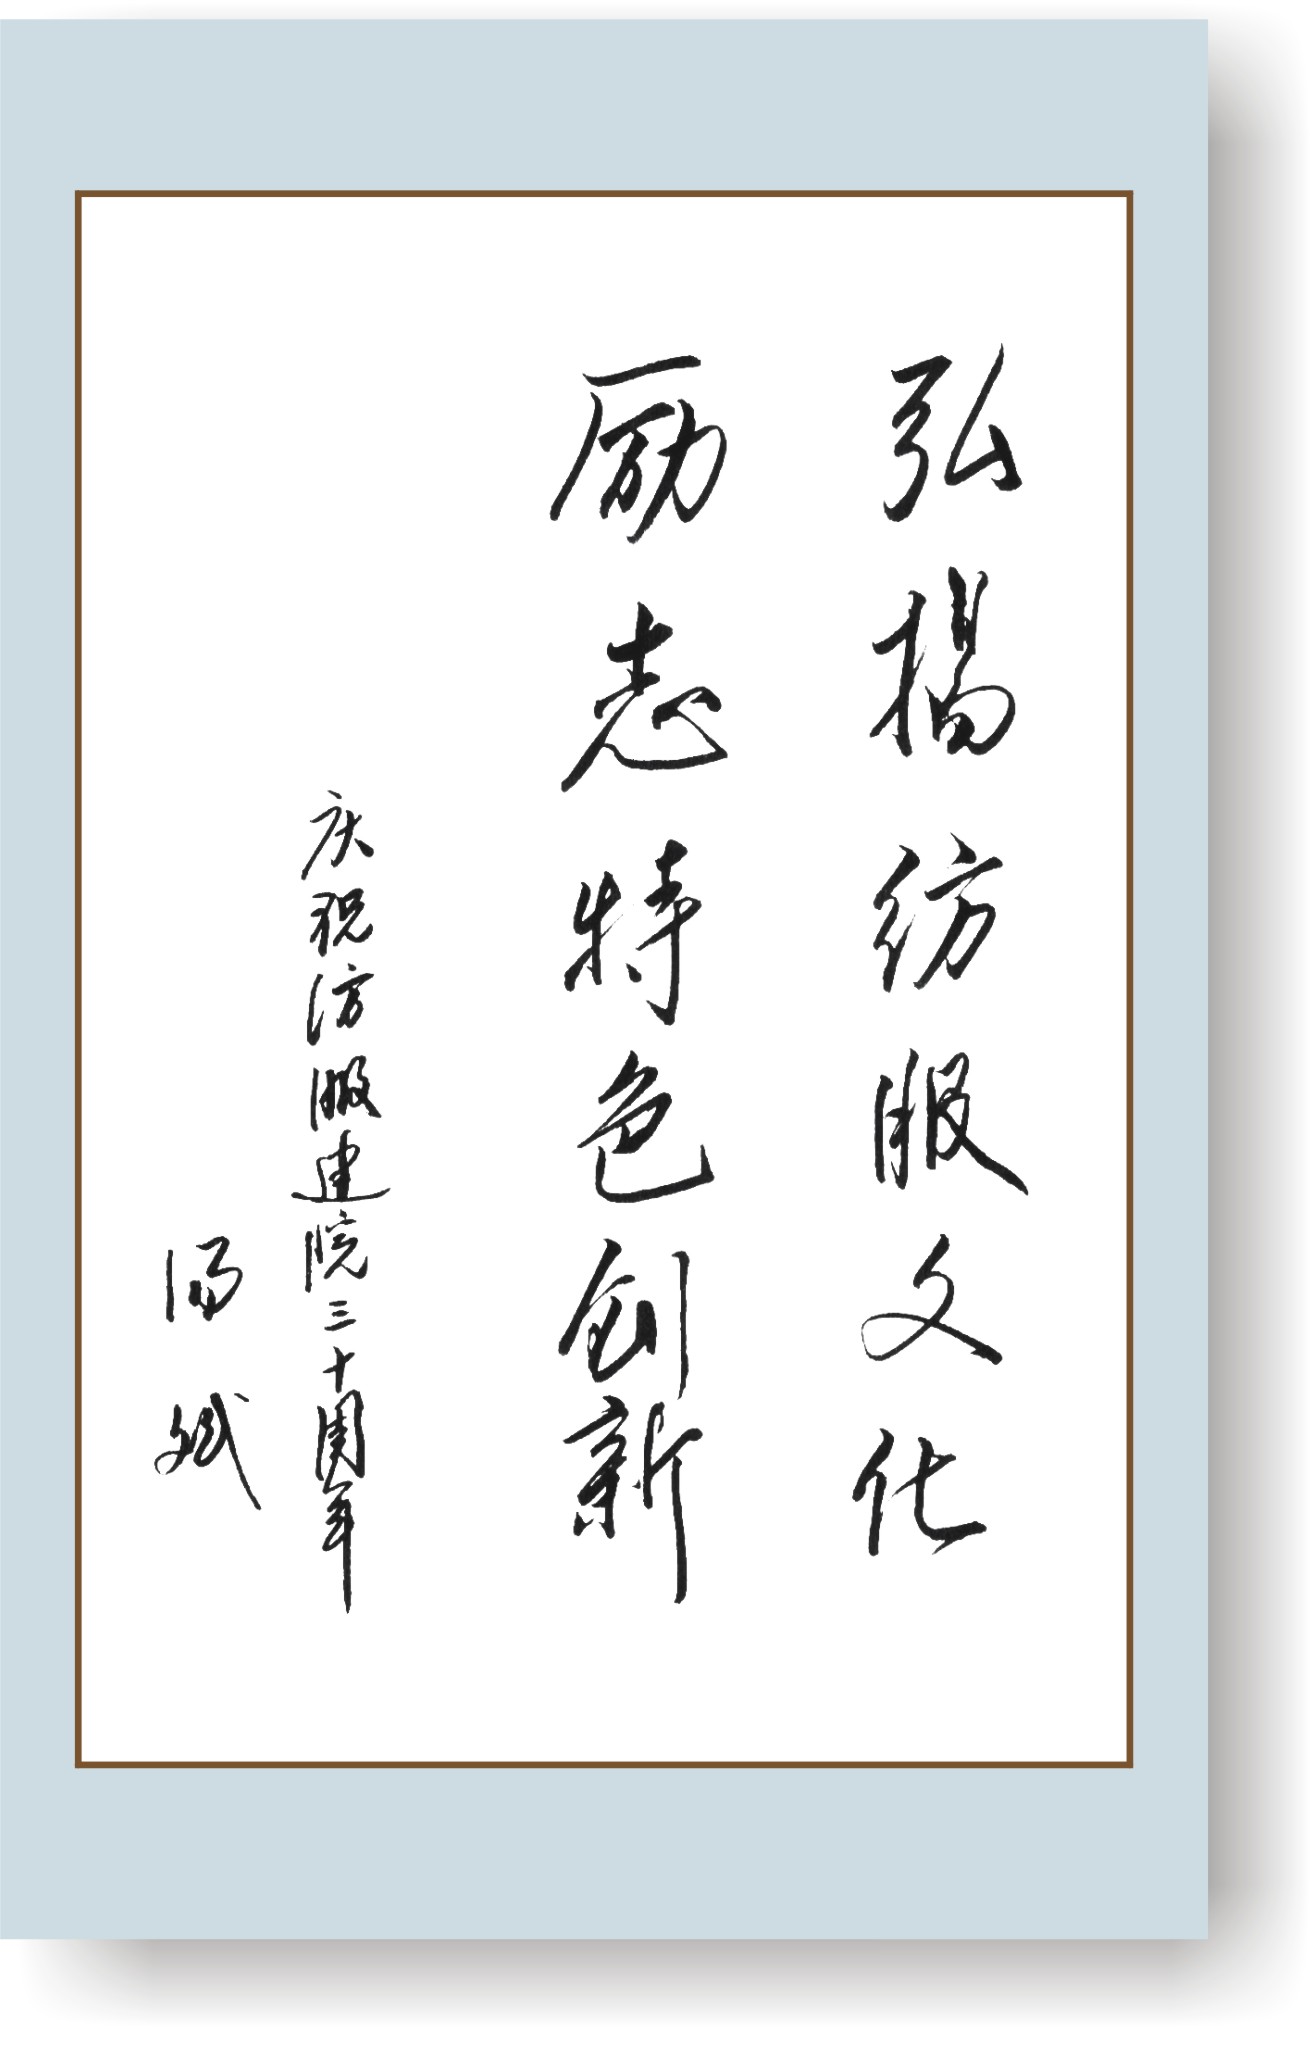 弘扬纺服文化
励志特色创新
庆祝纺服建院三十周年
汤斌